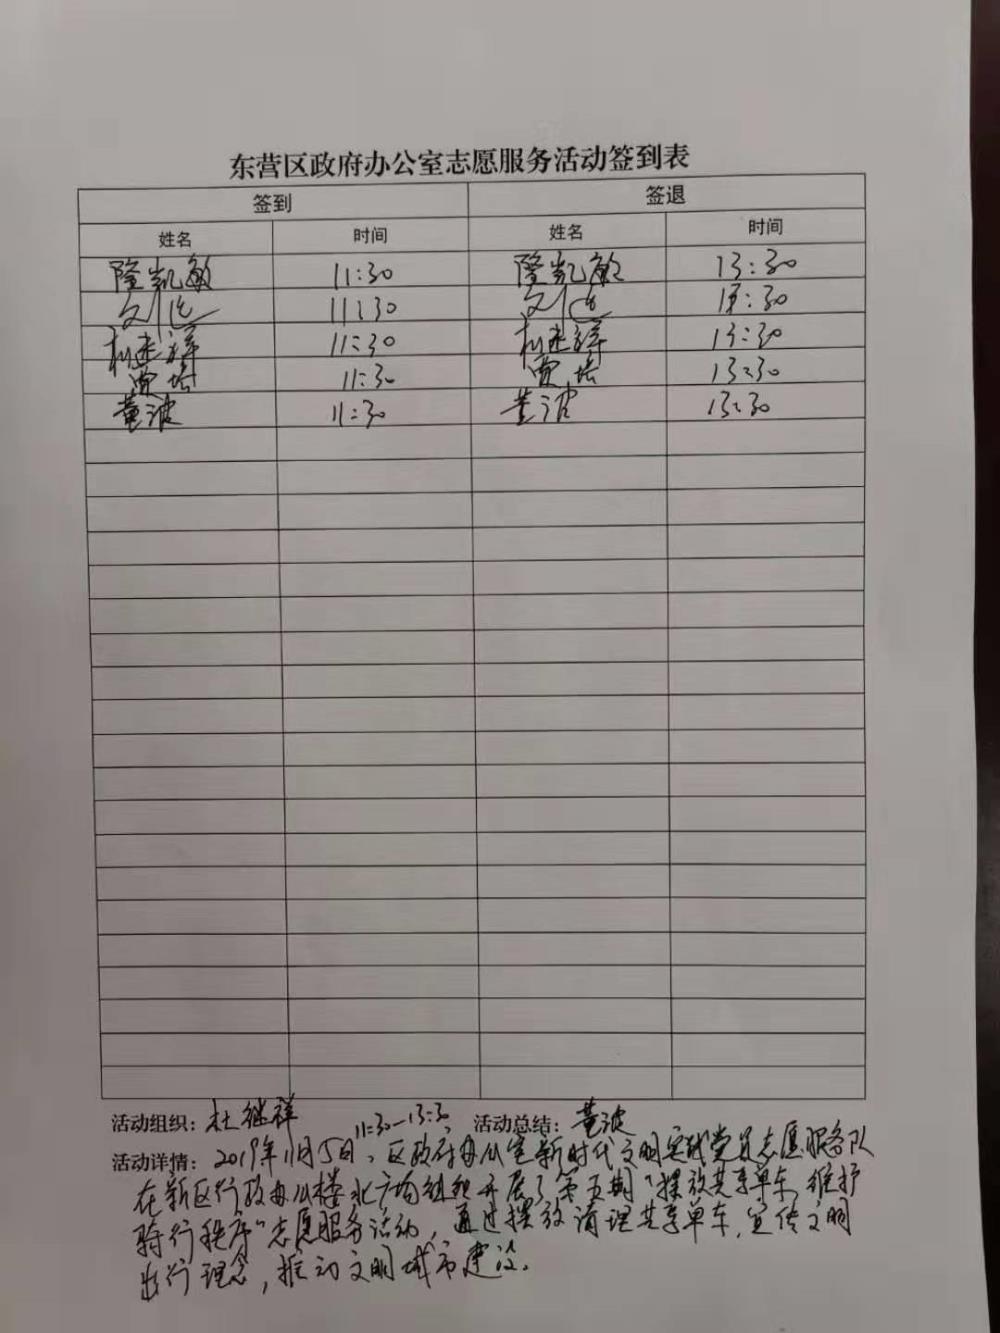 东营区政府办公室志愿服务活动签到表
签到 签退
姓名 时间 姓名 时间
隆凯敏 11:30 隆凯敏 13:30
刘 11:30 刘 13:30
杜继祥 11:30 杜继祥 13:30
贾 11:30 贾 13:30
董波 11:30 董波 13:30
活动组织：杜继祥 活动总结：董波
11:30—13:30
活动详情：2019年11月5日，区政府办公室新时代文明实践党员志愿服务队
在新区行政办公楼北广场组织开展了第五期“摆放共享单车，维护
骑行秩序”志愿服务活动，通过摆放清理共享单车，宣传文明
出行理念，推动文明城市建设。